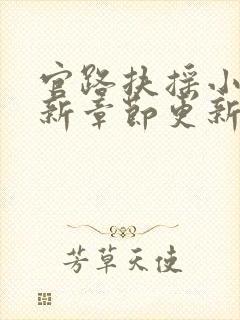 官路扶摇小
新章节更新
芳草天使